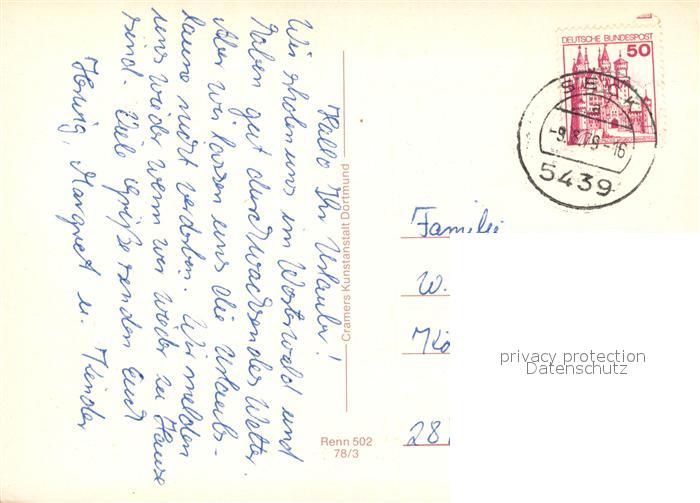 Hallo Ihr Urlauber!
Wir erholen uns im Westerwald und
haben gut durchwachsenes Wetter.
Aber wir lassen uns die Urlaubs-
laune nicht verderben. Wir melden
uns wieder wenn wir wieder zu Hause
sind. Viele Grüße senden Euch
Margret u. Kinder
Cramers Kunstanstalt Dortmund
Renn 502
78/3
DEUTSCHE BUNDESPOST
50
SECK
a
-9.8.79-16
5439
Familie
W.
Kö
28
privacy protection
Datenschutz